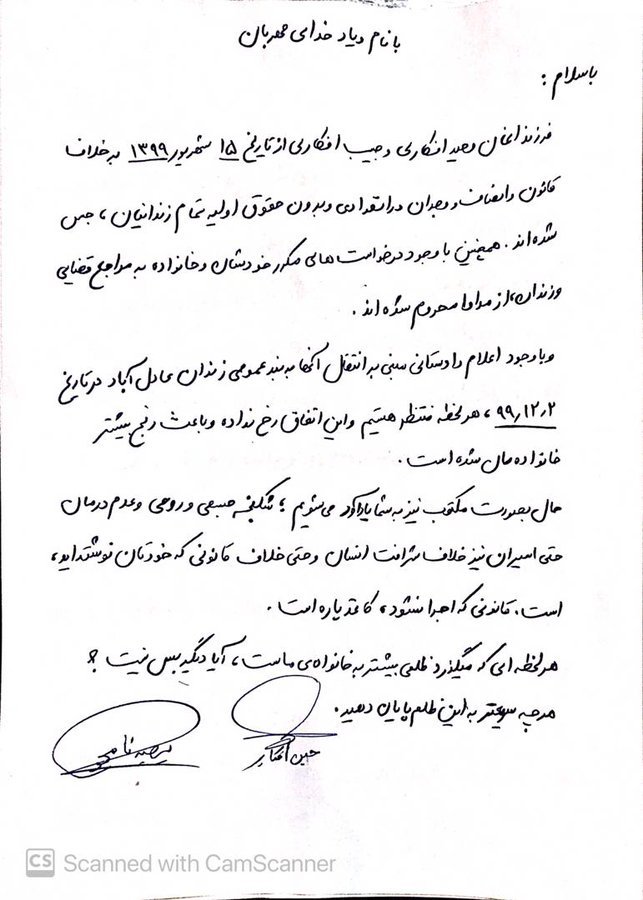 با نام و یاد خدای مهربان
با سلام :
فرزندانمان وحید افکاری و حبیب افکاری از تاریخ ۱۵ شهریور ۱۳۹۹ بر خلاف
قانون و انصاف و وجدان در انفرادی و بدون حقوق اولیه تمام زندانیان ، حبس
شده اند . همچنین با وجود درخواست های مکرر خودشان و خانواده به مراجع قضایی
و زندان، از مداوا محروم شده اند .
و با وجود اعلام دادستانی مبنی بر انتقال آنها به بند عمومی زندان عادل آباد در تاریخ
۹۹,۱۲,۲ ، هر لحظه منتظر هستیم و این اتفاق رخ نداده و باعث رنج بیشتر
خانواده مان شده است .
حال بصورت مکتوب نیز به شما یادآور می شویم ؛ شکنجه جسمی و روحی و عدم درمان
حتی اسیران نیز خلاف شرافت انسان و حتی خلاف قانونی که خودتان نوشته اید ،
است . قانونی که اجرا نشود ، کاغذ پاره است .
هر لحظه ای که میگذرد ظلمی بیشتر به خانواده ی ماست ، آیا دیگر بس نیست ؟
هر چه سریعتر به این ظلم پایان دهید .
حسین افکاری
CS Scanned with CamScanner